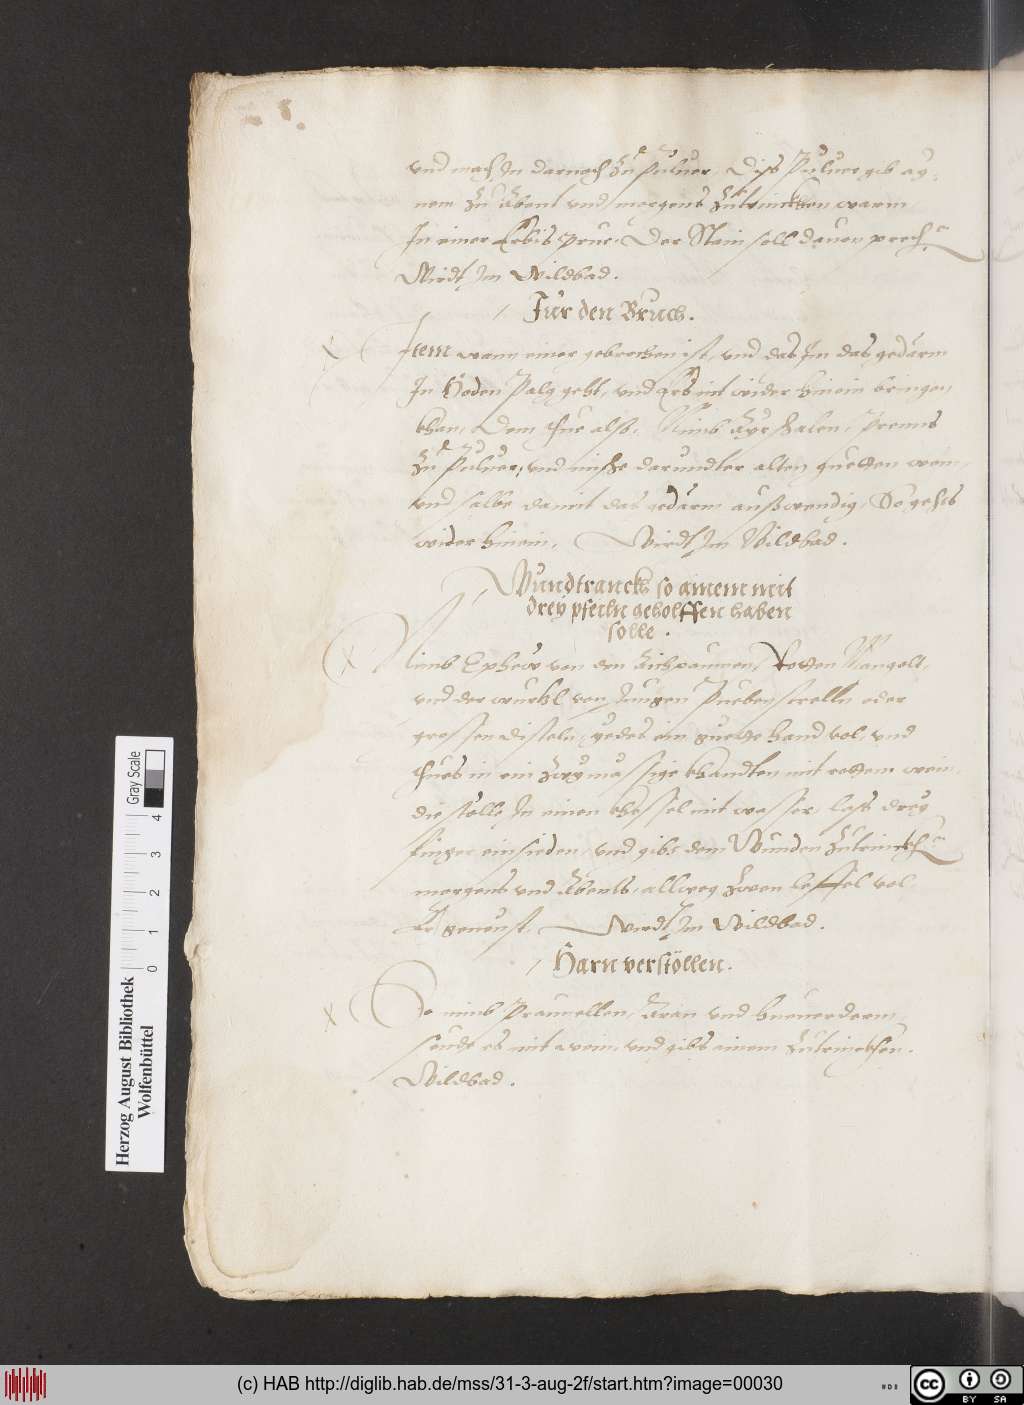 vnd mach In darnach Zu Puluer, Diss Puluer gib ay,
nem Zu Abent vnd morgens Zutrinckhen warm,
In einer Erbis prue, Der Stain soll dauon prech
Wirdt Im Wildbad.
Für den Bruch.
Item wann einer gebrochen ist, vnd das Im das gedärm
In Hoden Palg geht, vnd Ers nit wider hinein bringen
khan, Dem thue alss. Nimb Ayrschalen, Prenns
Zu Puluer, vnd mische darundter alten guetten wein,
vnd salbe damit das gedärm ausswendig, So gehts
wider hinein. Wirdt Im Wildbad.
Wundtranckh so ainem mit
drey pfeiln geholffen haben
solle.
Nimb Ephew von den Aichpaumen, Rotten Mangolt,
vnd der wurtzl von Jungen oder
grossen disteln, yedes ein guette hand vol, vnd
thues in ein Zwymässige khandten mit rottem wein,
die stölle In einen khessel mit wasser, lass drey
finger einsieden, vnd gibs dem Wunden Zutrinckh
morgens vnd Abents, allweg Zwen leffel vol
Er geneust. Wirdt Im Wildbad.
Harn verstöllen.
So nimb Praunellen, vnd
seude es mit wein, vnd gibs ainem Zutrinckhen.
Wildbad.
Gray Scale
0 1 2 3 4
Herzog August Bibliothek
Wolfenbüttel
(c) HAB http://diglib.hab.de/mss/31-3-aug-2f/start.htm?image=00030
cc BY SA